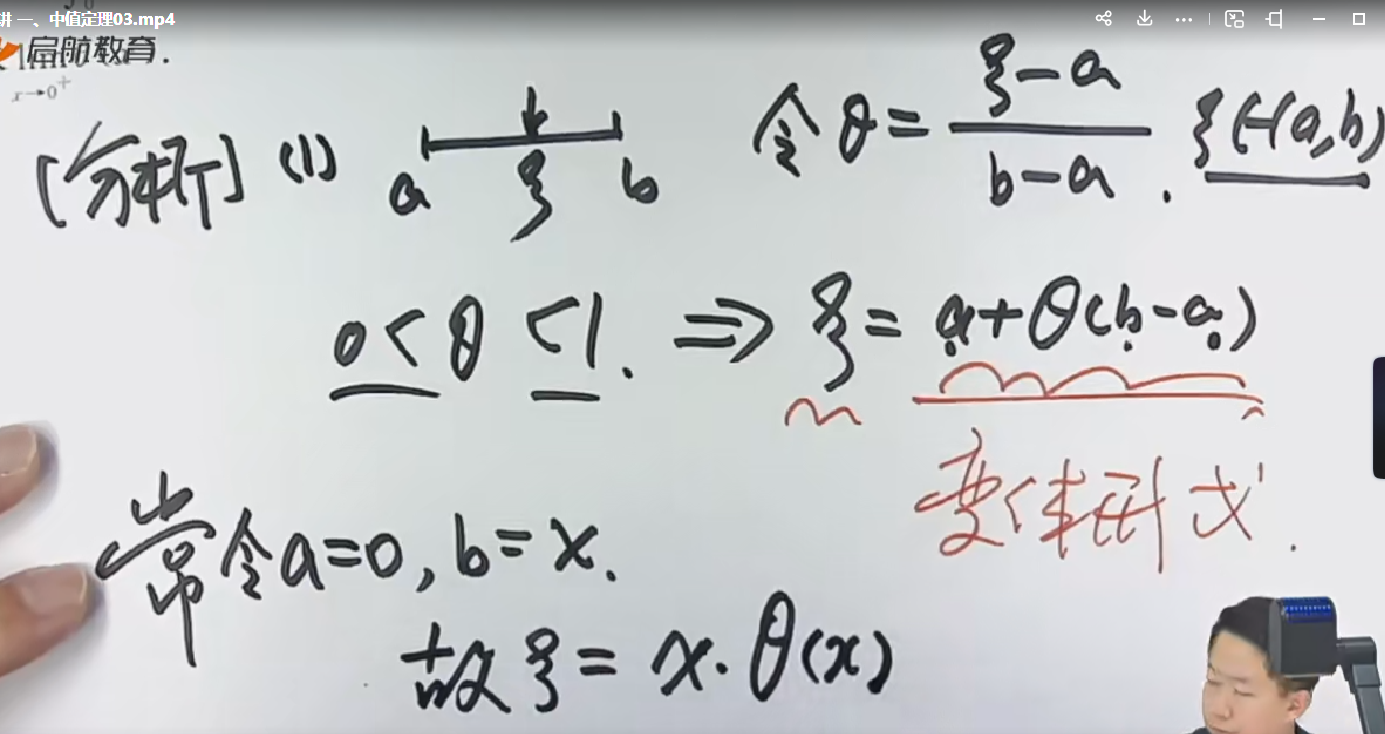 讲 一、中值定理03.mp4
启航教育.
x→0⁺
[分析] (1) a ξ b 令 θ = (ξ-a)/(b-a). ξ∈(a,b)
0<θ<1. ⇒ ξ = a+θ(b-a)
变体形式.
常令a=0, b=x.
故 ξ = x·θ(x)